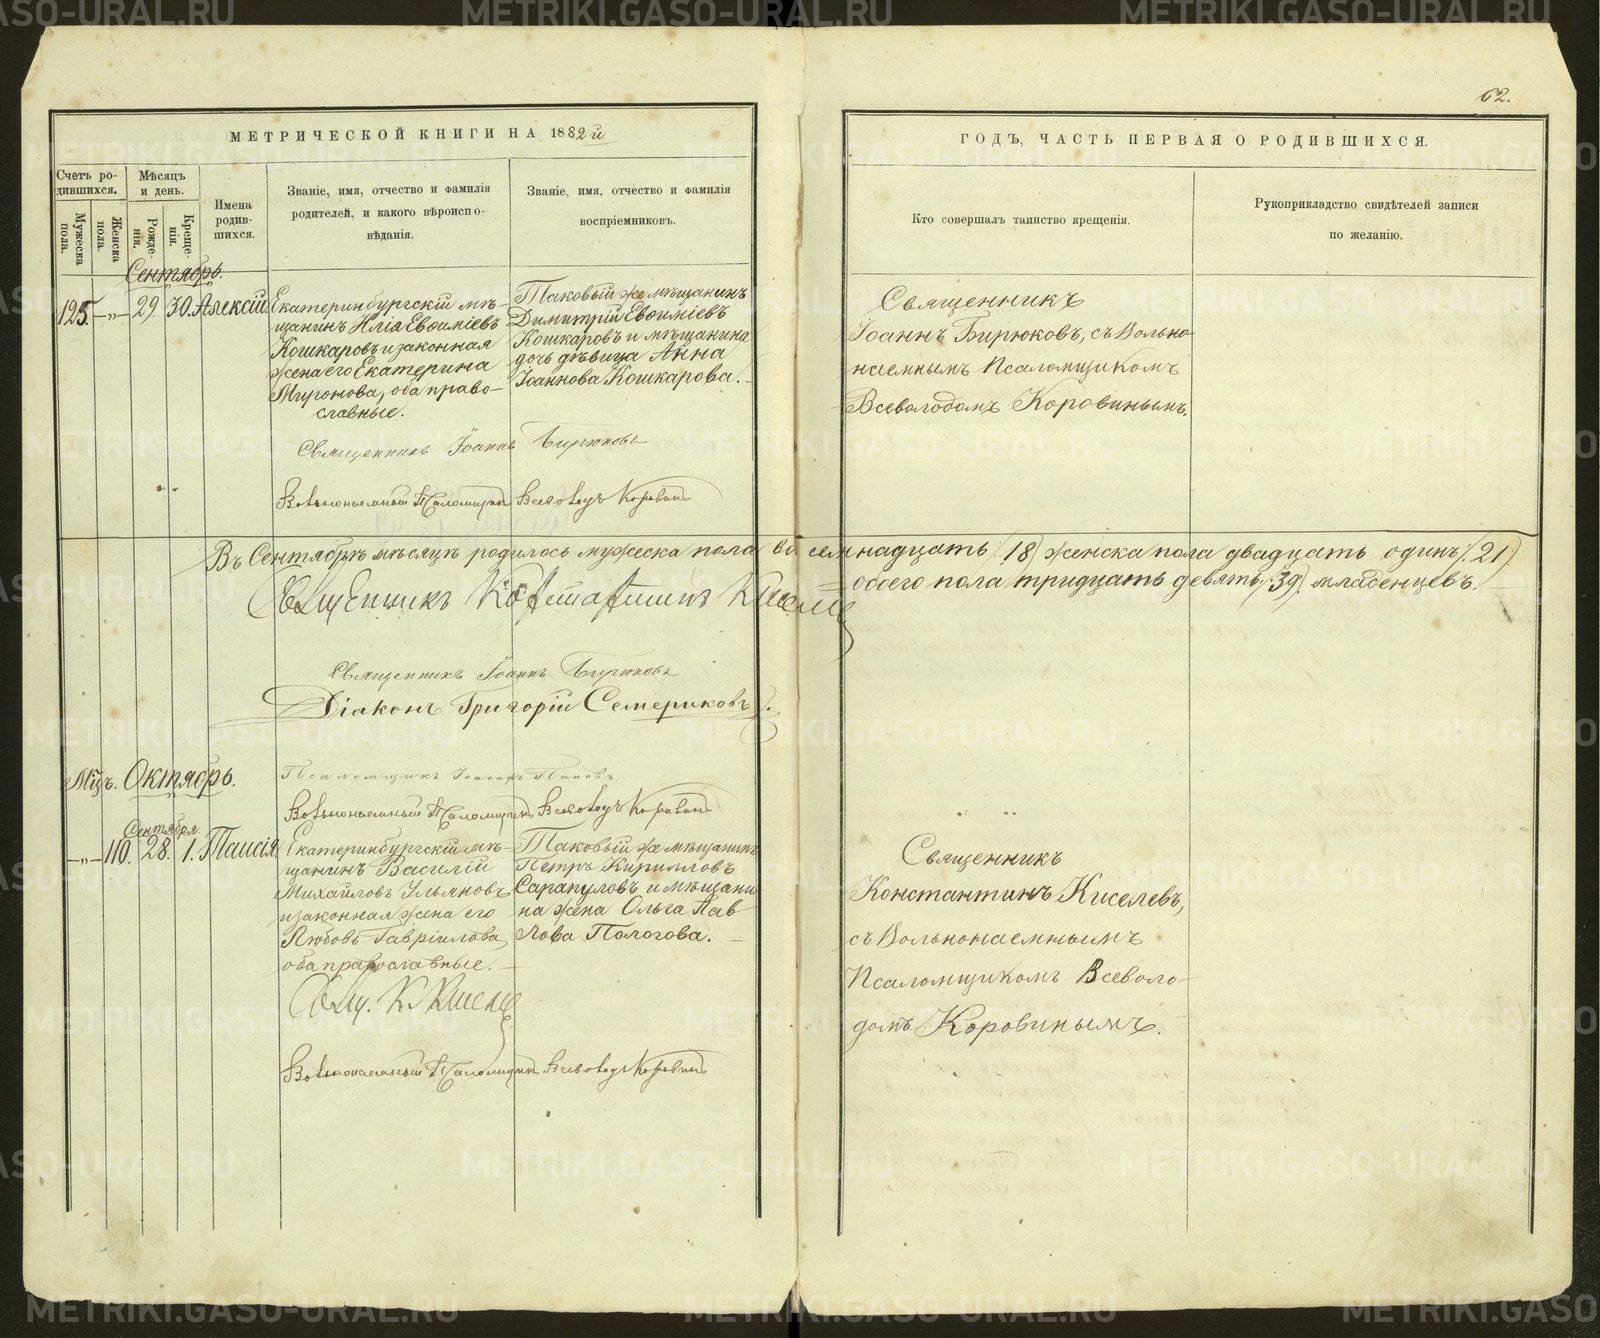 62.
МЕТРИЧЕСКОЙ КНИГИ НА 1882й
ГОДЪ, ЧАСТЬ ПЕРВАЯ О РОДИВШИХСЯ.
Счетъ ро-
дившихся.
Мужеска
пола.
Женска
пола.
Мѣсяцъ
и день.
Рожде-
нія.
Креще-
нія.
Имена
родив-
шихся.
Званіе, имя, отчество и фамилія
родителей, и какого вѣроиспо-
вѣданія.
Званіе, имя, отчество и фамилія
воспріемниковъ.
Кто совершалъ таинство крещенія.
Рукоприкладство свидѣтелей записи
по желанію.
Сентябрь.
125. —„— 29 30. Алексій
Екатеринбургскій мѣ-
щанинъ Илія Евѳиміевъ
Кошкаровъ и законная
жена его Екатерина
Миронова, оба право-
славные.
Таковый же мѣщанинъ
Димитрій Евѳиміевъ
Кошкаровъ и мѣщанина
дочь дѣвица Анна
Іоаннова Кошкарова.
Священникъ
Іоаннъ Бирюковъ, съ Вольно-
наемнымъ Псаломщикомъ
Всеволодомъ Коровинымъ.
Священникъ Іоаннъ Бирюковъ
Вольнонаемный Псаломщикъ Всеволодъ Коровинъ
Въ Сентябрѣ мѣсяцѣ родилось мужеска пола восемнадцать /18/ женска пола двадцать одинъ /21/
обоего пола тридцать девять /39/ младенцевъ.
Священникъ Константинъ Киселев
Священникъ Іоаннъ Бирюковъ
Діаконъ Григорій Семериковъ.
Псаломщикъ Іоасафъ Пановъ.
Вольнонаемный Псаломщикъ Всеволодъ Коровинъ
Мцъ. Октябрь.
Сентября
—„— 110. 28. 1. Таисія
Екатеринбургскій мѣ-
щанинъ Василій
Михайловъ Ульяновъ
и законная жена его
Любовь Гавріилова
оба православные.
Таковый же мѣщанинъ
Петръ Кирилловъ
Сарапуловъ и мѣщани-
на жена Ольга Пав-
лова Пологова.
Священникъ
Константинъ Киселевъ,
съ Вольнонаемнымъ
Псаломщикомъ Всеволо-
домъ Коровинымъ.
Свящ. К. Киселев
Вольнонаемный Псаломщикъ Всеволодъ Коровинъ
METRIKI.GASO-URAL.RU